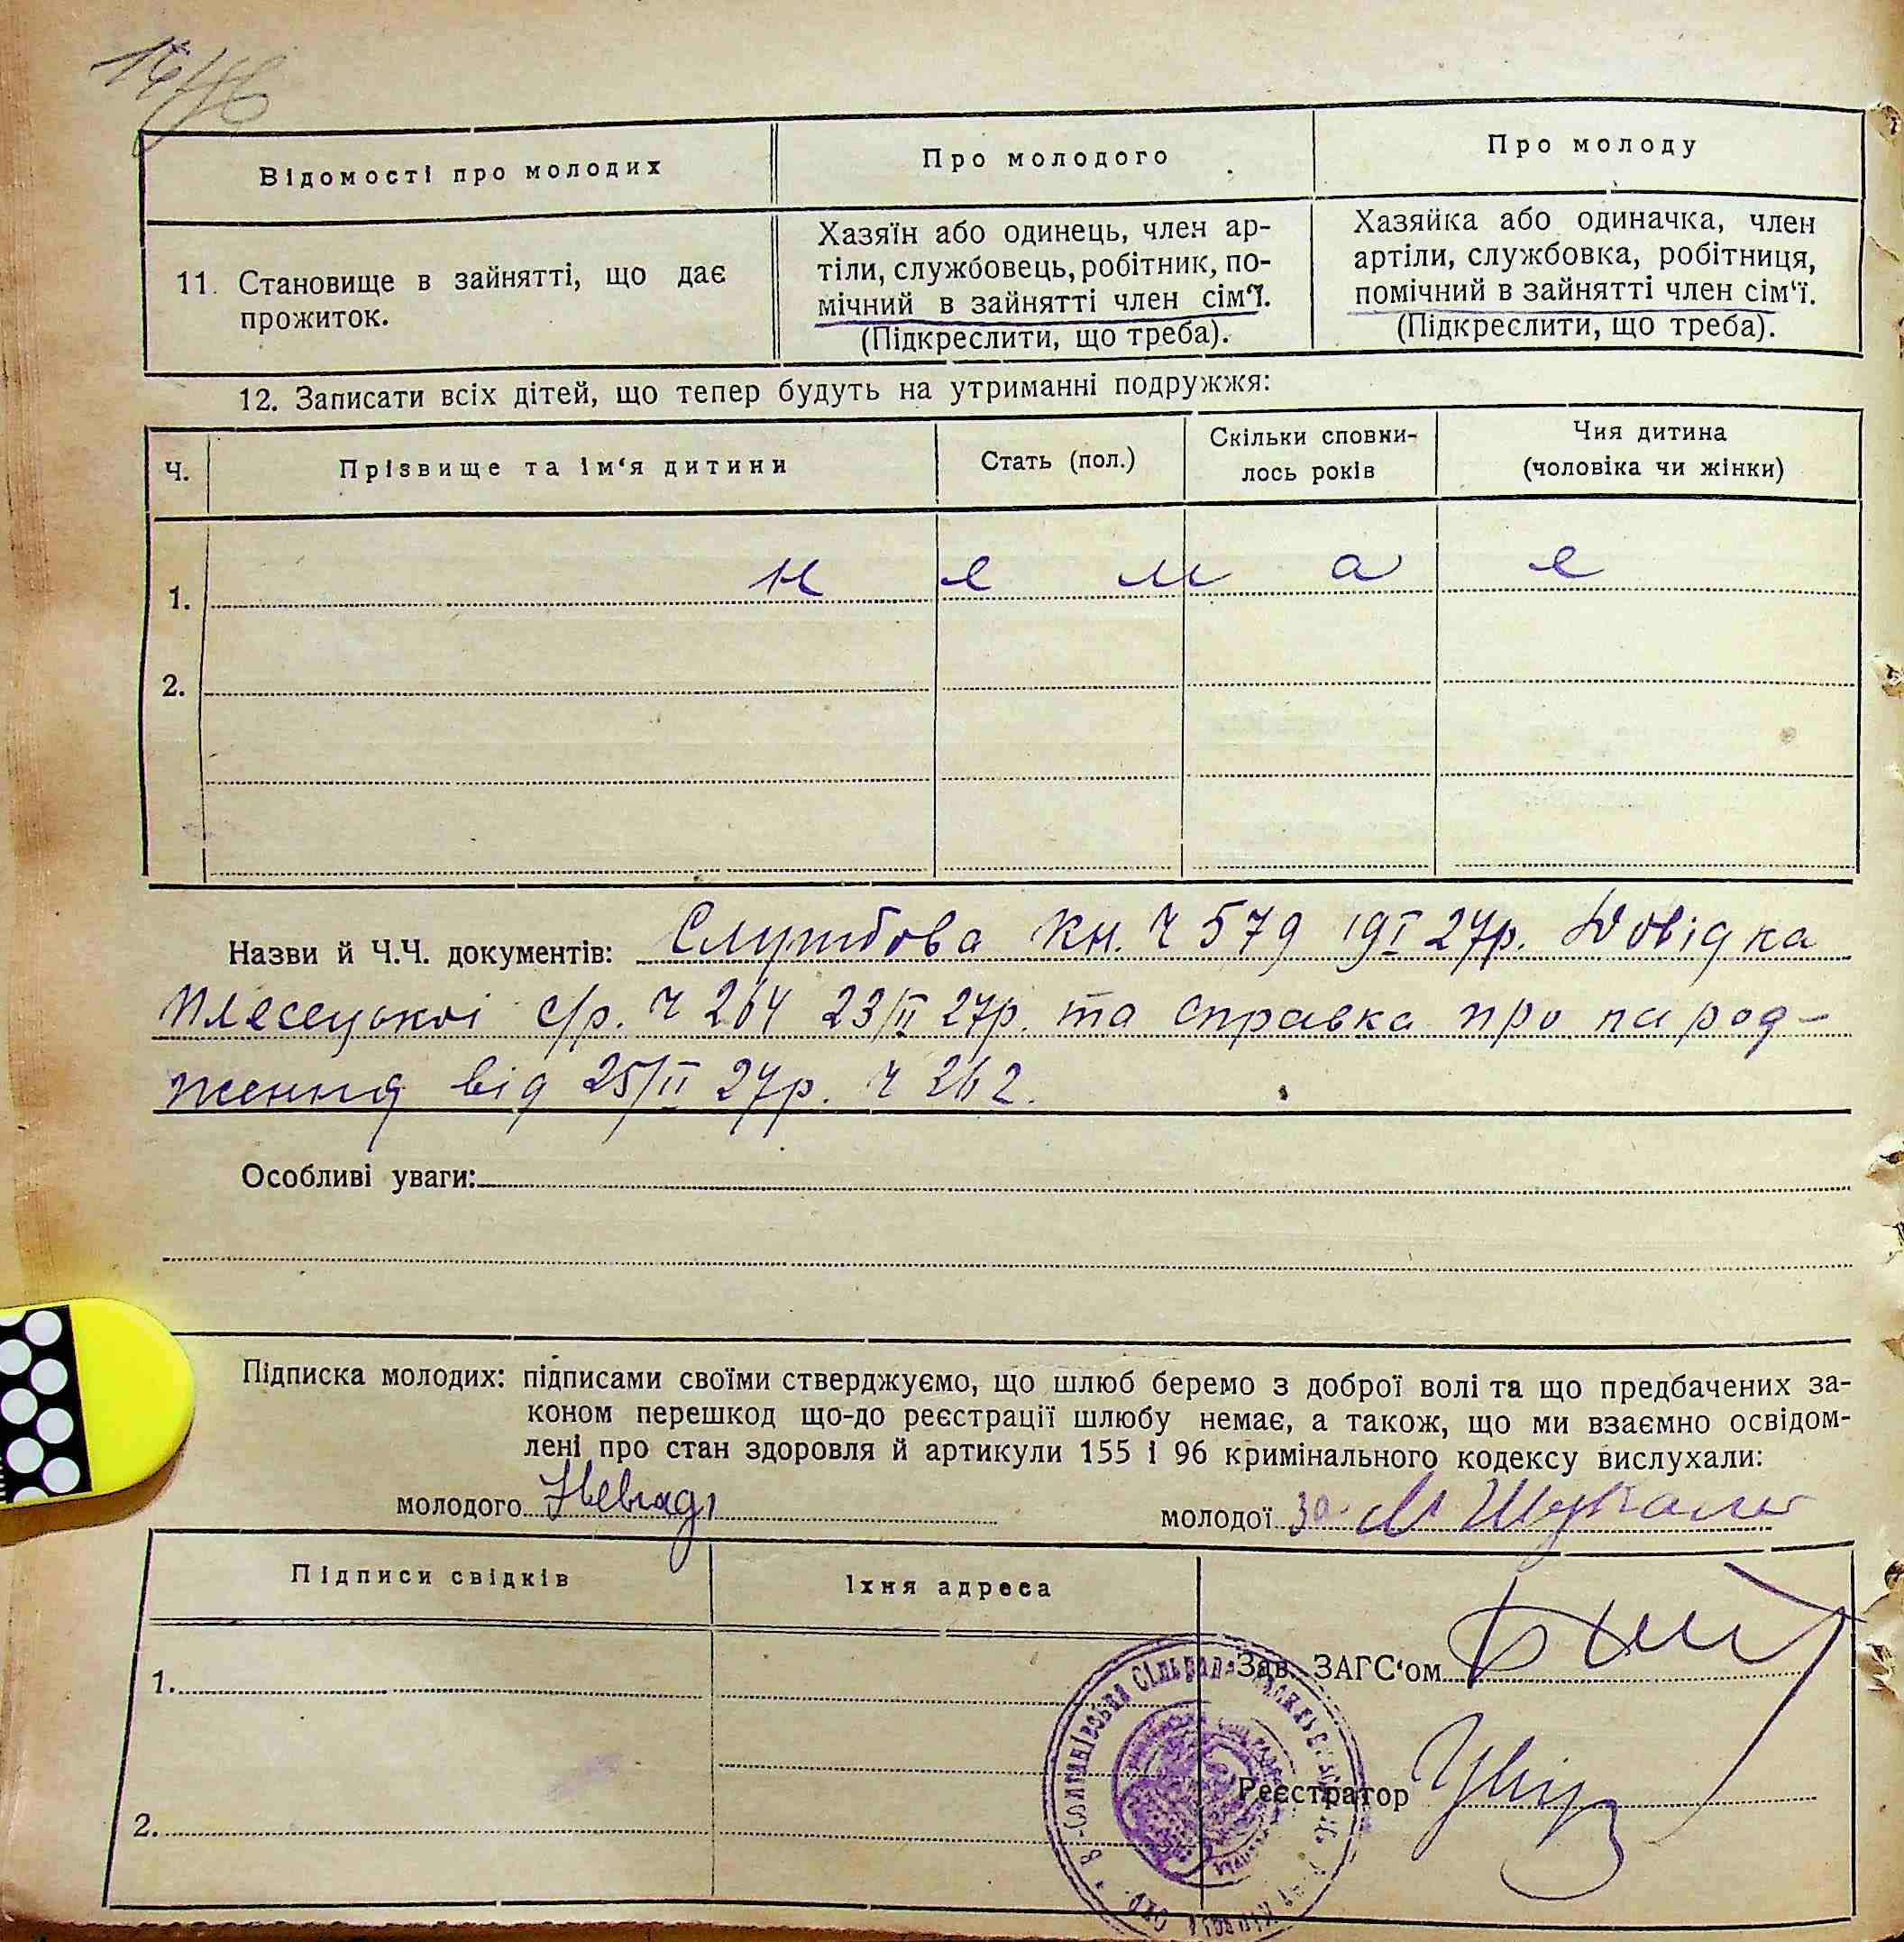 Відомості про молодих
Про молодого
Про молоду
11. Становище в зайнятті, що дає
прожиток.
Хазяїн або одинець, член ар-
тіли, службовець, робітник, по-
мічний в зайнятті член сім'ї.
(Підкреслити, що треба).
Хазяйка або одиначка, член
артіли, службовка, робітниця,
помічний в зайнятті член сім'ї.
(Підкреслити, що треба).
12. Записати всіх дітей, що тепер будуть на утриманні подружжя:
Ч.
Прізвище та ім'я дитини
Стать (пол.)
Скільки сповни-
лось років
Чия дитина
(чоловіка чи жінки)
1. н е м а е
2.
Назви й Ч.Ч. документів: Службова кн. Ч 579 19 І 27р. Довідка
Плесецькоі с/р. Ч 264 23/ІІ 27р. та справка про народ-
ження від 25/ІІ 27р. Ч 262.
Особливі уваги:
Підписка молодих: підписами своїми стверджуємо, що шлюб беремо з доброї волі та що предбачених за-
коном перешкод що-до реєстрації шлюбу немає, а також, що ми взаємно освідом-
лені про стан здоровля й артикули 155 і 96 кримінального кодексу вислухали:
молодого
молодої за
Підписи свідків
Їхня адреса
1.
2.
Зав. ЗАГС'ом
Реєстратор